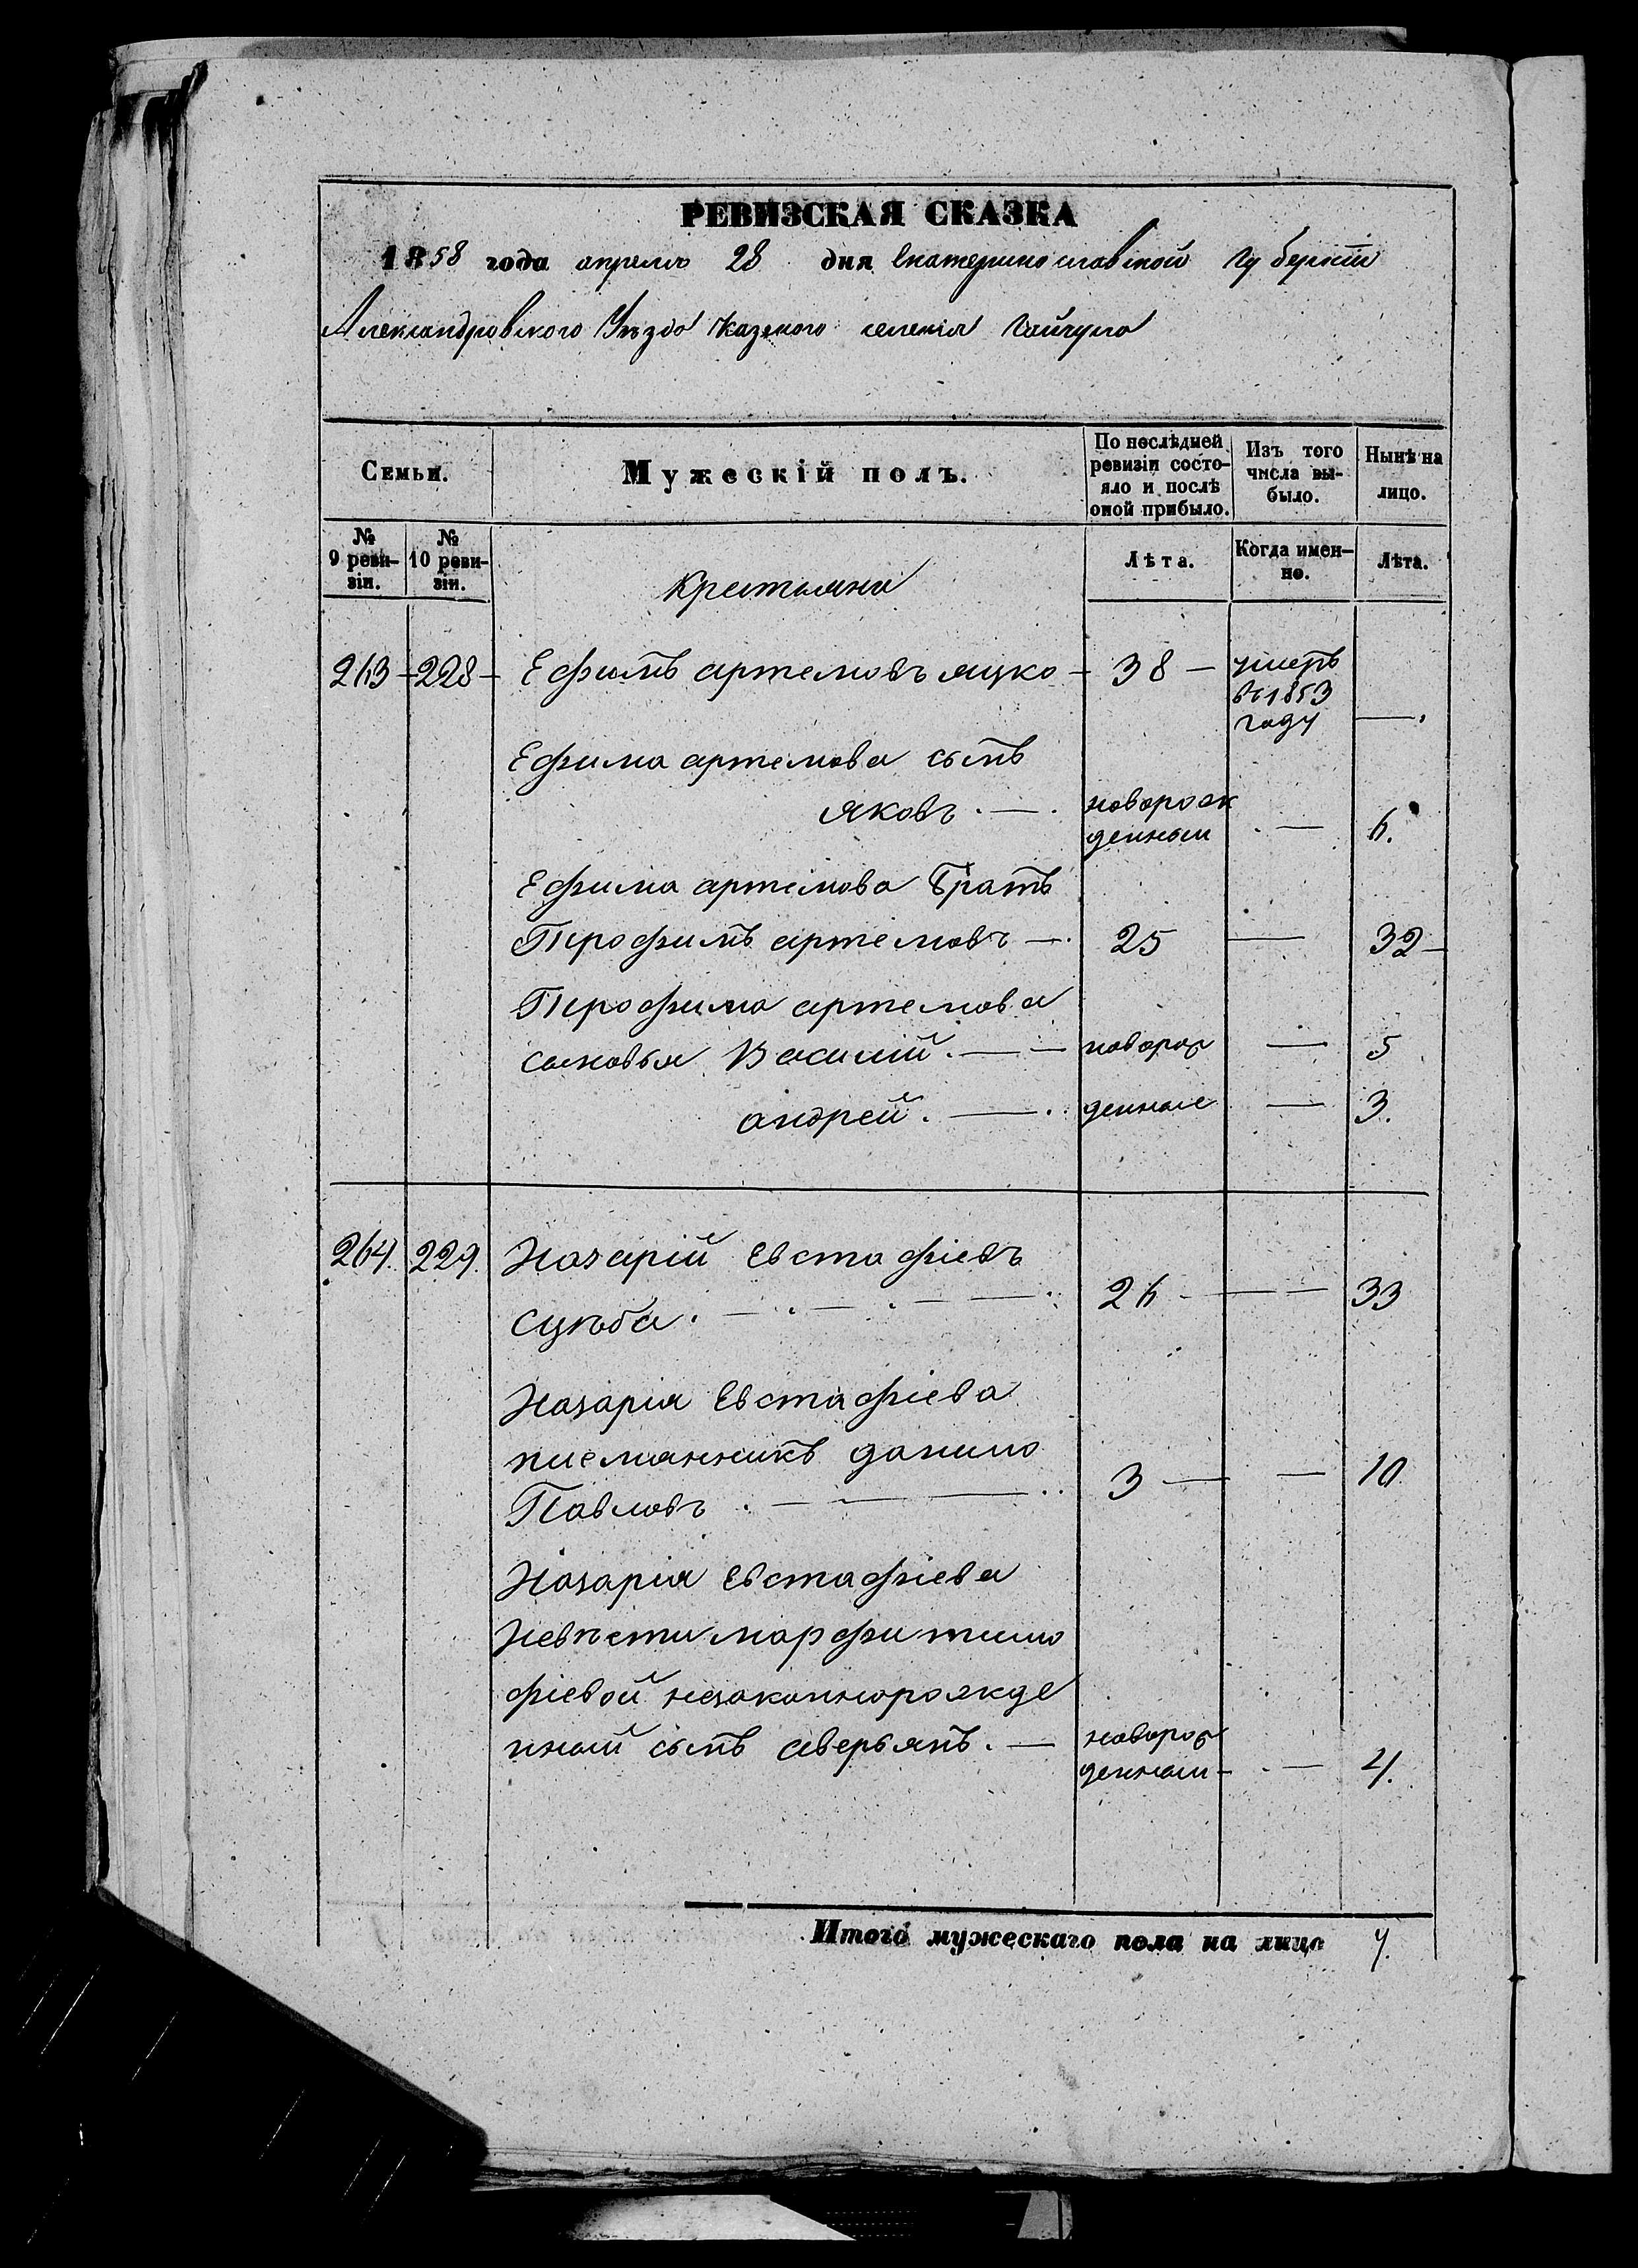 РЕВИЗСКАЯ СКАЗКА
1858 года апреля 28 дня Екатеринославской Губерніи
Александровского Уезда Казеного селенія Гайчула
Семьи.
Мужескій полъ.
По послѣдней ревизіи состояло и послѣ оной прибыло.
Изъ того числа выбыло.
Нынѣ на лицо.
№ 9 ревизіи.
№ 10 ревизіи.
Крестьяна
Лѣта.
Когда именно.
Лѣта.
263 228 Ефимъ артемовъ яцко 38 умеръ
въ 1853
году
Ефима артемова сынъ
яковъ. новорож
денный 6.
Ефима артемова Братъ
Трофимъ артемовъ 25 32
Трофима артемова
сыновья Василий. новорож 5
андрей. денные 3.
264 229 Назарій Евстафіевъ
26 33
Назарія Евстафіева
племянникъ данило
Павловъ 3 10
Назарія Евстафіева
Невѣсти марфи тимо
фіевой незаконнорожде
нный сынъ аверьянъ. новорож
денный 4.
Итого мужескаго пола на лицо 7.